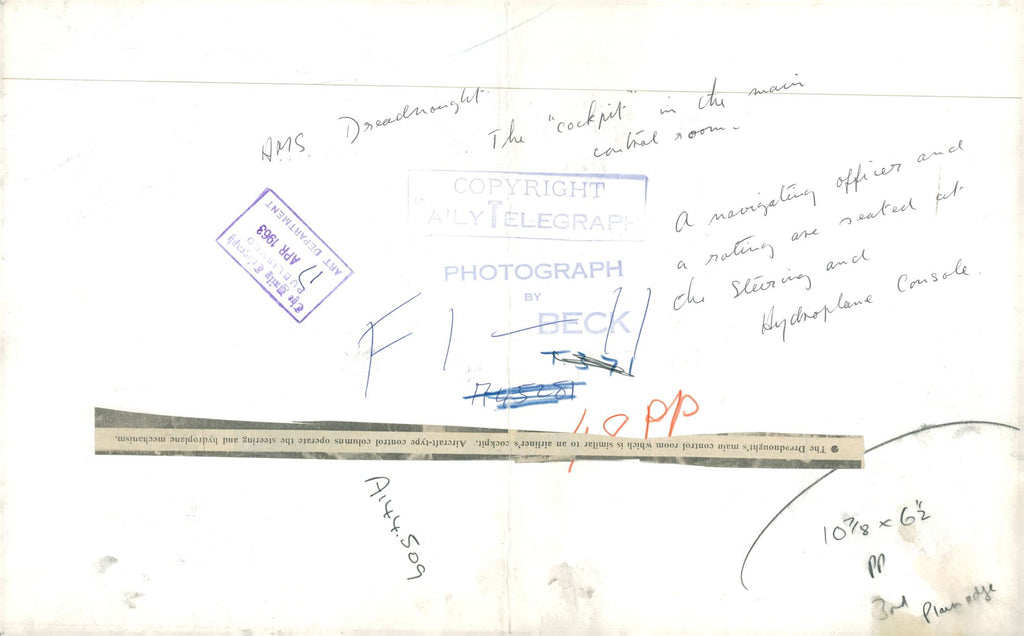 HMS. Dreadnought
The "cockpit" in the main
control room.
A navigating officer and
a rating are seated at
the Steering and
Hydroplane Console.
COPYRIGHT
DAILY TELEGRAPH
PHOTOGRAPH
BY
BECK
The Daily Telegraph
PUBLISHED
17 APR 1963
ART DEPARTMENT
F1-11
T.371
10 PP
The Dreadnought's main control room which is similar to an airliner's cockpit. Aircraft-type control columns operate the steering and hydroplane mechanism.
A144.509
10 7/8 x 6 1/2
PP
3rd Plain edge